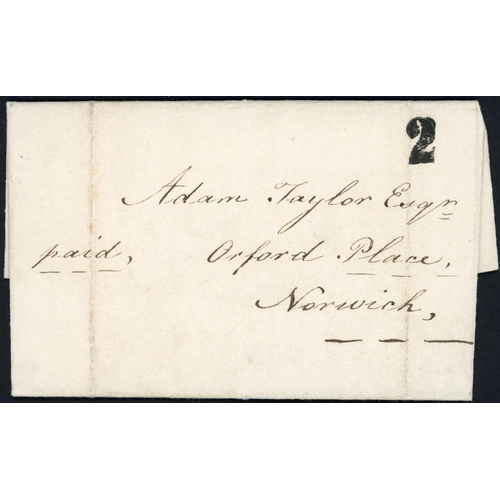 2
Adam Taylor Esqr
paid, Orford Place,
Norwich,